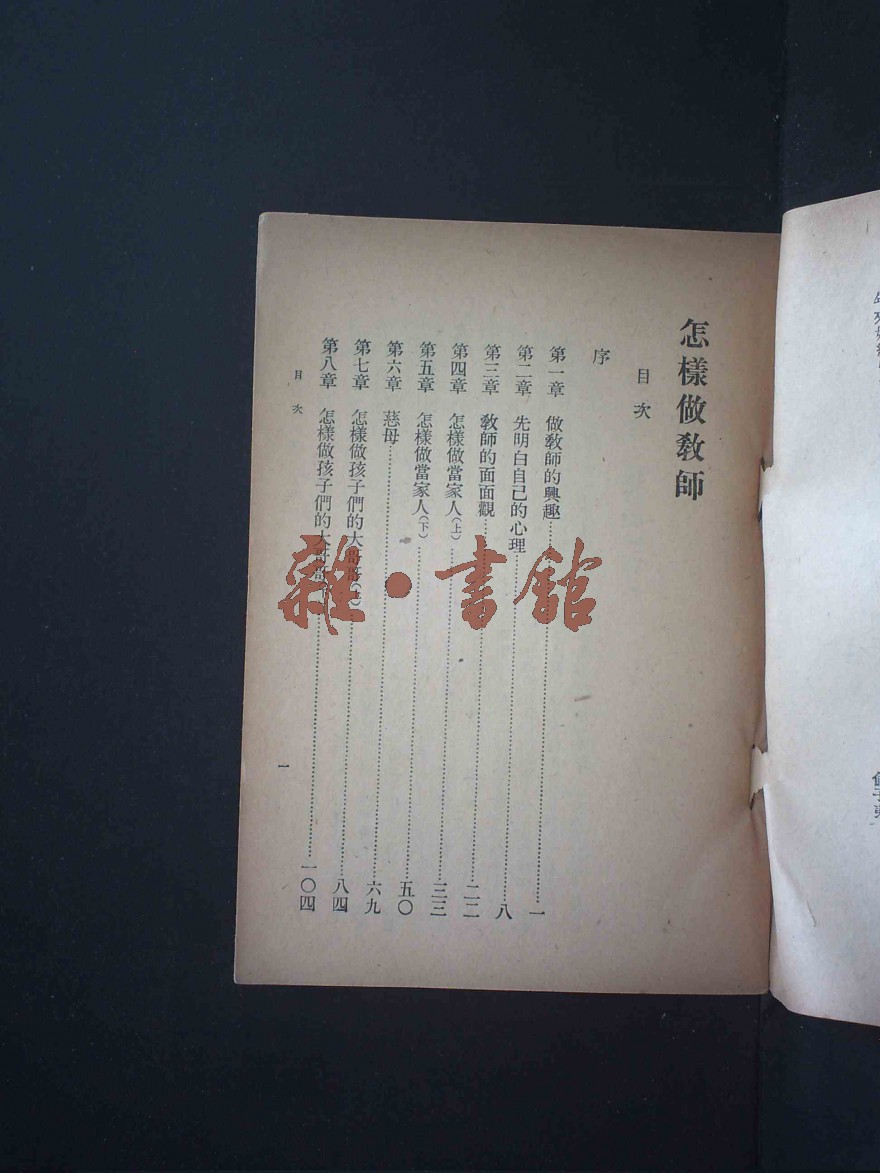 怎樣做教師
目次
序
第一章 做教師的興趣⋯⋯一
第二章 先明白自己的心理⋯⋯八
第三章 教師的面面觀⋯⋯二二
第四章 怎樣做當家人(上)⋯⋯三三
第五章 怎樣做當家人(下)⋯⋯五〇
第六章 慈母⋯⋯六九
第七章 怎樣做孩子們的大哥哥(上)⋯⋯八四
第八章 怎樣做孩子們的大哥哥⋯⋯一〇四
目次
一
雜·書館